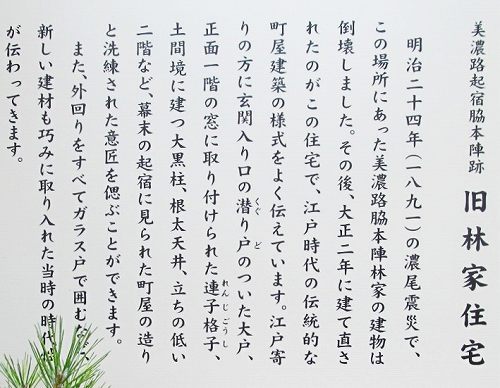 美濃路起宿脇本陣跡
旧林家住宅
明治二十四年(一八九一)の濃尾震災で、
この場所にあった美濃路脇本陣林家の建物は
倒壊しました。その後、大正二年に建て直さ
れたのがこの住宅で、江戸時代の伝統的な
町屋建築の様式をよく伝えています。江戸寄
りの方に玄関入り口の潜り戸のついた大戸、
くぐ ど
正面一階の窓に取り付けられた連子格子、
れんじごうし
土間境に建つ大黒柱、根太天井、立ちの低い
二階など、幕末の起宿に見られた町屋の造り
と洗練された意匠を偲ぶことができます。
また、外回りをすべてガラス戸で囲むな
新しい建材も巧みに取り入れた当時の時代
が伝わってきます。